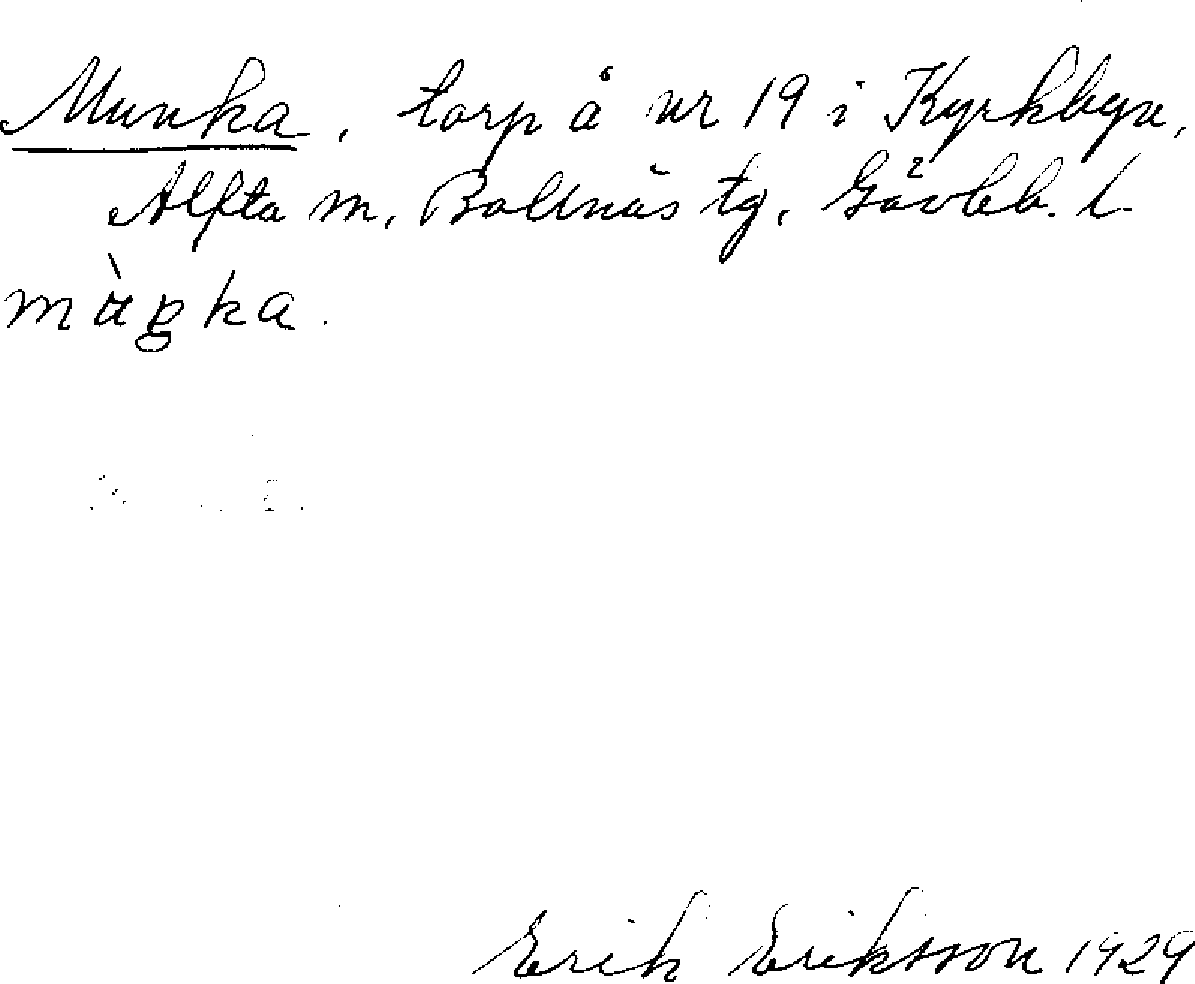 Munka, torp å nr 19 i Kyrkbyn,
Alfta sn, Bollnäs tg, Gävleb. l.
màŋka.
Erik Eriksson 1929